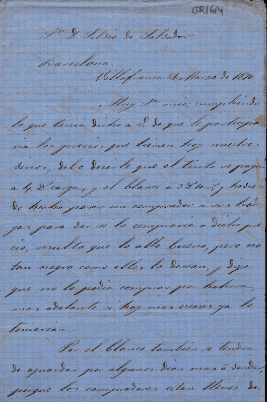 COR/6/4
Sr. D. Silvio de Salvador
Barcelona
Villafranca Marzo de 1870
Muy Sr. mio; cumpliendo
lo que tenia dicho a V. de que le participa
ria los precios que tienen hoy nuestros
vinos, debo decirle que el tinto se paga
a la carga, y el blanco a
do hecho un comprador a
para ver si lo compraria a dicho pre
cio, resulta que lo allo bueno, pero no
tan negro como ellos lo desean, y dijo
que no lo podia comprar por haora,
mas adelante si hay mas ya lo
tomarian.
Por el blanco tambien se tendra
de aguardar por algunos dias mas a vender,
porque los compradores estan llenos de